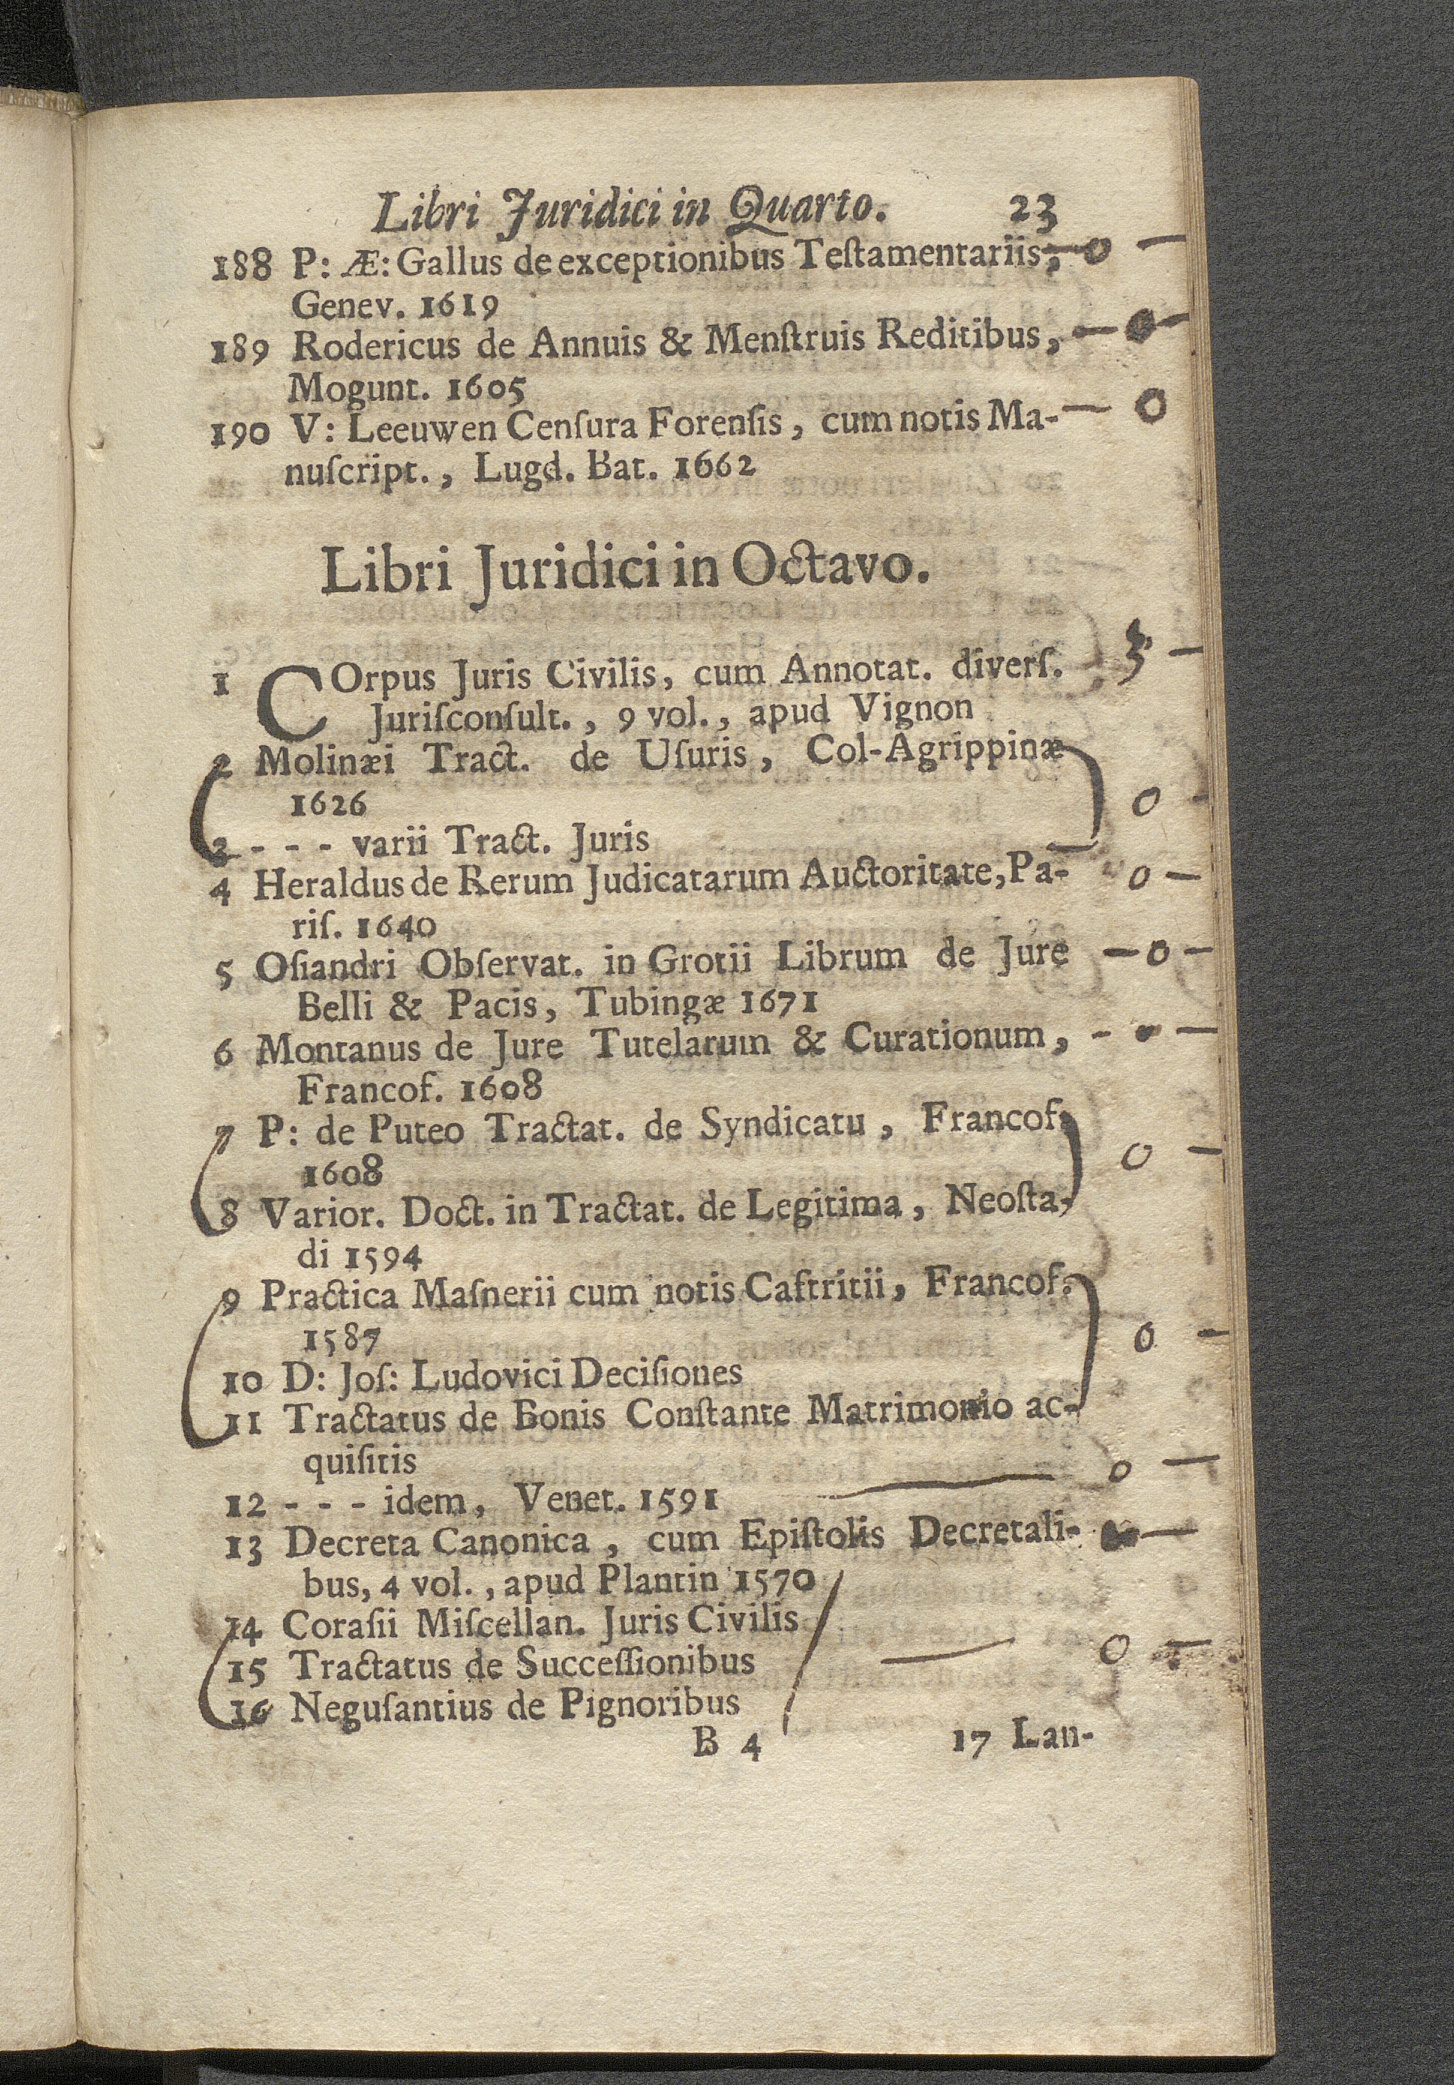 Libri Juridici in Quarto. 23
188 P: Æ: Gallus de exceptionibus Teſtamentariis, — 0 —
Genev. 1619
189 Rodericus de Annuis & Menſtruis Reditibus, — 0 —
Mogunt. 1605
190 V: Leeuwen Cenſura Forenſis, cum notis Ma- — 0
nuſcript., Lugd. Bat. 1662
Libri Juridici in Octavo.
1 COrpus Juris Civilis, cum Annotat. diverſ.
Juriſconſult., 9 vol., apud Vignon
2 Molinæi Tract. de Uſuris, Col-Agrippinæ
1626 0 -
3 - - - varii Tract. Juris
4 Heraldus de Rerum Judicatarum Auctoritate, Pa- 0 —
riſ. 1640
5 Oſiandri Obſervat. in Grotii Librum de Jure — 0 —
Belli & Pacis, Tubingæ 1671
6 Montanus de Jure Tutelarum & Curationum,
Francof. 1608
7 P: de Puteo Tractat. de Syndicatu, Francof.
1608 0 —
8 Varior. Doct. in Tractat. de Legitima, Neoſta-
di 1594
9 Practica Maſnerii cum notis Caſtritii, Francof.
1587 0 —
10 D: Joſ: Ludovici Deciſiones
11 Tractatus de Bonis Conſtante Matrimonio ac-
quiſitis
12 - - - idem, Venet. 1591 — 0 —
13 Decreta Canonica, cum Epiſtolis Decretali-
bus, 4 vol., apud Plantin 1570
14 Coraſii Miſcellan. Juris Civilis
15 Tractatus de Succeſſionibus — 0 —
16 Neguſantius de Pignoribus
B 4 17 Lan-